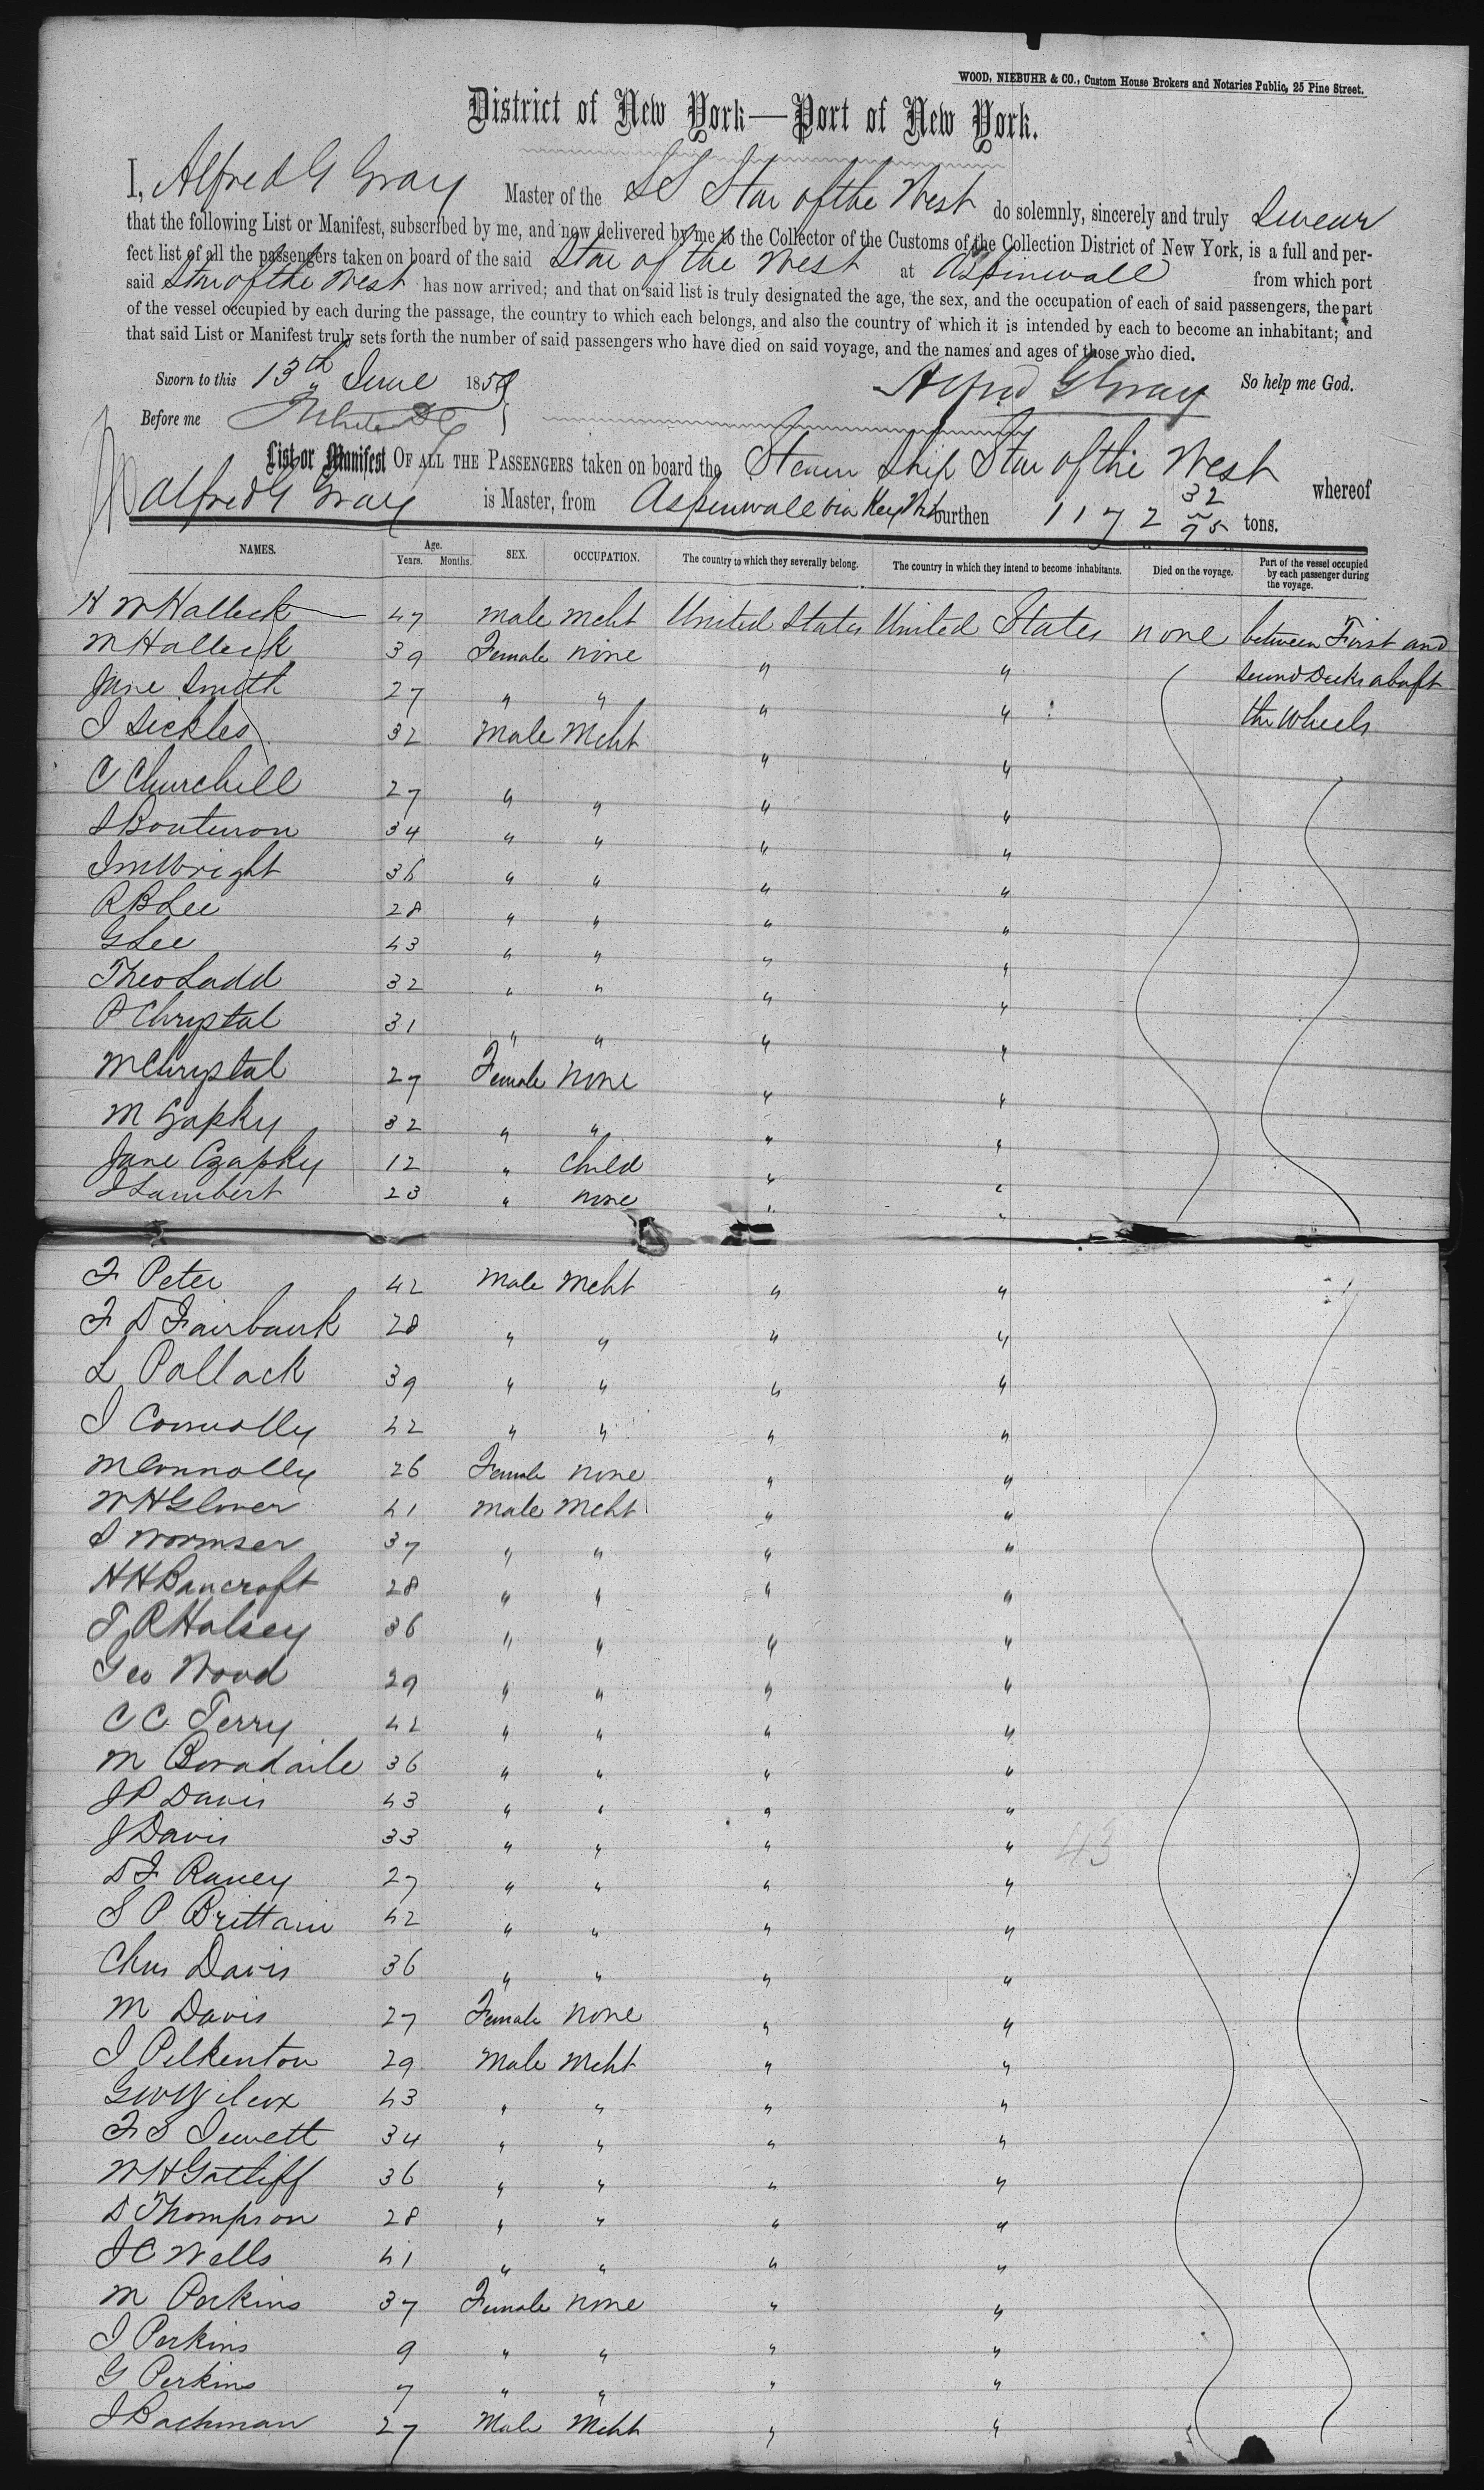 WOOD, NIEBUHR & CO., Custom House Brokers and Notaries Public, 25 Pine Street.
District of New York—Port of New York.
I, Alfred G Gray Master of the SS Star of the West do solemnly, sincerely and truly swear
that the following List or Manifest, subscribed by me, and now delivered by me to the Collector of the Customs of the Collection District of New York, is a full and per-
fect list of all the passengers taken on board of the said Star of the West at Aspinwall from which port
said Star of the West has now arrived; and that on said list is truly designated the age, the sex, and the occupation of each of said passengers, the part
of the vessel occupied by each during the passage, the country to which each belongs, and also the country of which it is intended by each to become an inhabitant; and
that said List or Manifest truly sets forth the number of said passengers who have died on said voyage, and the names and ages of those who died.
Sworn to this 13th June 1859 Alfred G Gray So help me God.
Before me
List or Manifest OF ALL THE PASSENGERS taken on board the Steam Ship Star of the West whereof
Alfred G Gray is Master, from Aspinwall via Key West burthen 1172 32/95 tons.
NAMES. Age. Years. Months. SEX. OCCUPATION. The country to which they severally belong. The country in which they intend to become inhabitants. Died on the voyage. Part of the vessel occupied by each passenger during the voyage.
H W Halleck 47 Male Mcht United States United States none between First and
M Halleck 39 Female none " " Second Decks abaft
Jane Smith 27 " " " " the Wheels
I Sickles 32 Male Mcht " "
C Churchill 27 " " " "
S Bouteron 34 " " " "
J M Wright 36 " " " "
R B Lee 28 " " " "
G Lee 43 " " " "
Theo Ladd 32 " " " "
P Chrystal 31 " " " "
M Chrystal 27 Female none " "
M Czapky 32 " " " "
Jane Czapky 12 " Child " "
J Lambert 23 " none " "
F Peter 42 Male Mcht " "
F D Fairbank 28 " " " "
L Pollack 39 " " " "
J Connolly 42 " " " "
M Connolly 26 Female none " "
W H Glover 41 Male Mcht " "
S Wormser 37 " " " "
H H Bancroft 28 " " " "
T R Halsey 36 " " " "
Geo Wood 29 " " " "
C C Terry 42 " " " "
M Boradaile 36 " " " "
J P Davis 43 " " " "
J Davis 33 " " " "
43
D F Raney 27 " " " "
S P Brittain 42 " " " "
Chas Davis 36 " " " "
M Davis 27 Female none " "
J Pelkenton 29 Male Mcht " "
G W Wilcox 43 " " " "
F S Jewett 34 " " " "
W H Gatliff 36 " " " "
D Thompson 28 " " " "
J C Wells 41 " " " "
M Perkins 37 Female none " "
J Perkins 9 " " " "
G Perkins 7 " " " "
J Bachman 27 Male Mcht " "